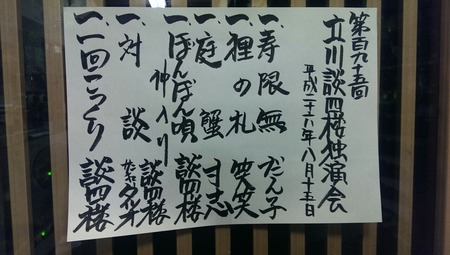 第百九十五回
立川談四楼独演会
平成二十六年八月十五日
一、寿限無 だん子
一、狸の札 笑笑
一、庭蟹 寸志
一、ぼんぼん唄 談四楼
仲入り
一、対談 談四楼
一、一回こっくり 談四楼